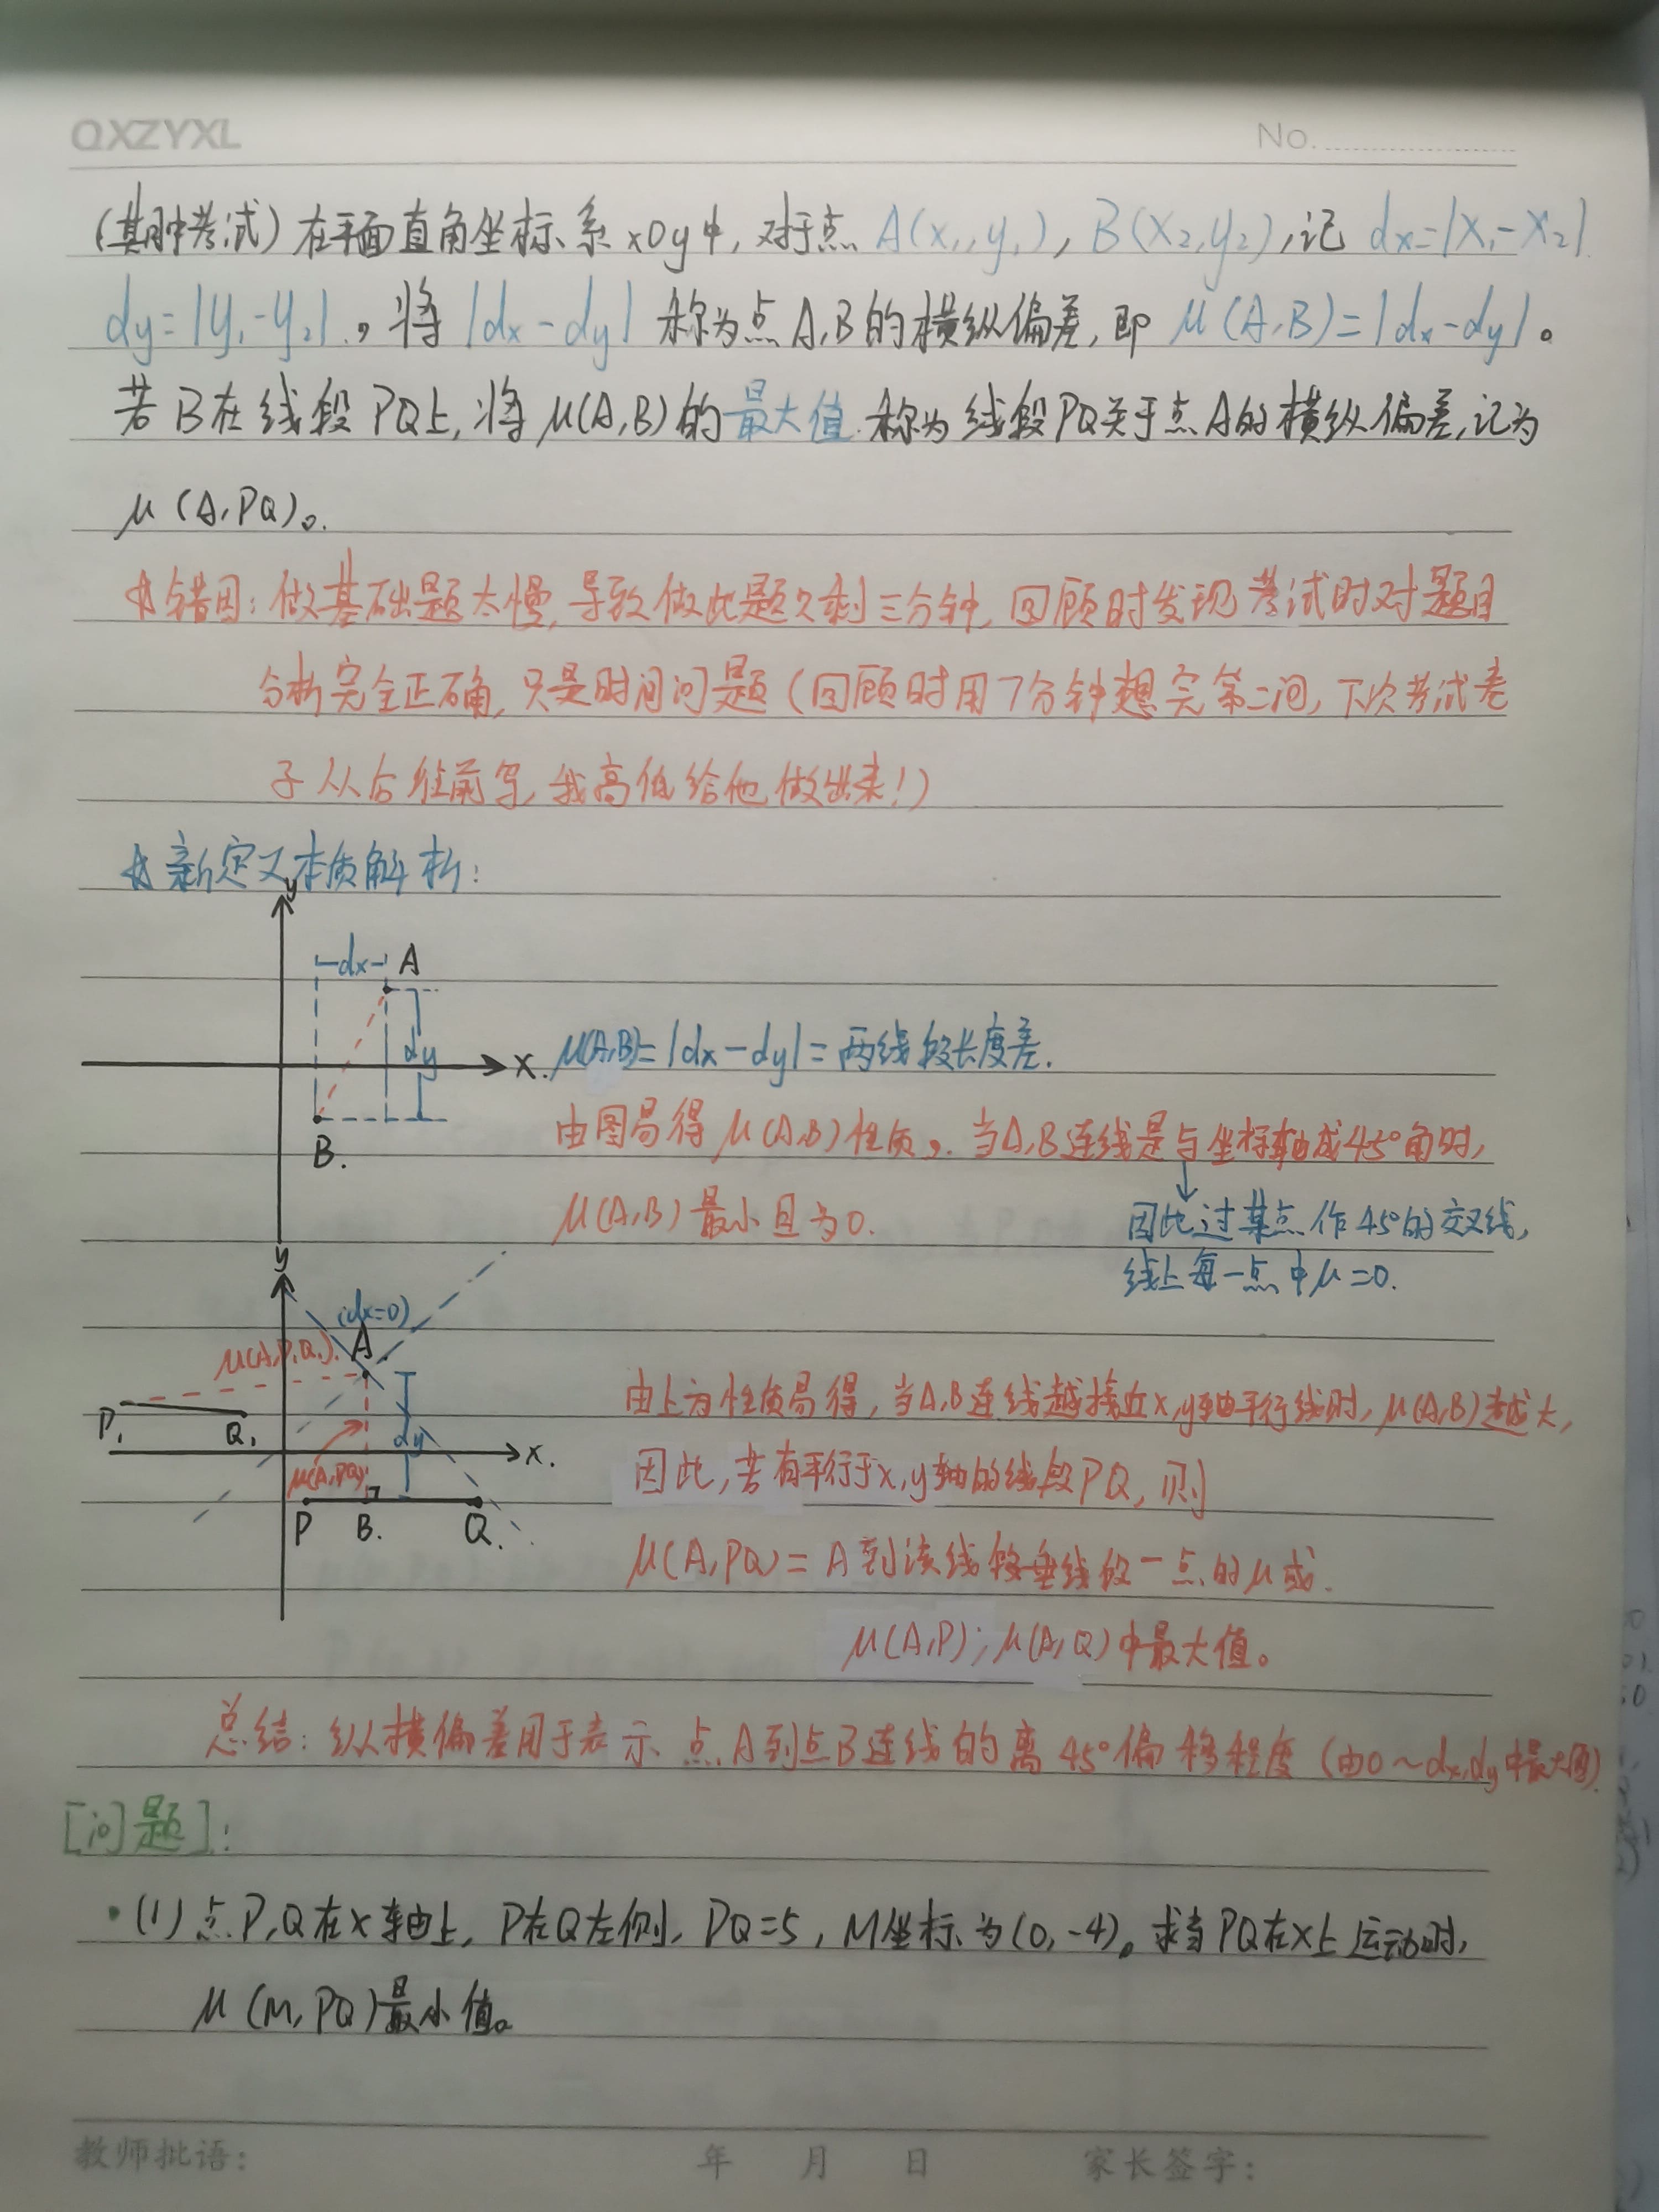 QXZYXL
No.
(期中考试)在平面直角坐标系xOy中,对于点A(x₁,y₁),B(x₂,y₂),记dx=|x₁-x₂|
dy=|y₁-y₂|。将|dx-dy|称为点A,B的横纵偏差,即μ(A,B)=|dx-dy|。
若B在线段PQ上,将μ(A,B)的最大值称为线段PQ关于点A的横纵偏差,记为
μ(A,PQ)。
☆错因:做基础题太慢,导致做此题只剩三分钟,回顾时发现考试时对题目
分析完全正确,只是时间问题(回顾时用7分钟想完第二问,下次考试卷
子从后往前写,我高低给他做出来!)
☆新定义本质解析:
y
dx
A
dy
x.
B.
μ(A,B)=|dx-dy|=两线段长度差.
由图易得μ(A,B)性质。当A,B连线是与坐标轴成45°角时,
μ(A,B)最小且为0.
因此过某点作45°的交叉线,
线上每一点中μ=0.
y
(dx=0)
A
μ(A,P₁Q₁).
P₁
Q₁
dy
x.
μ(A,PQ)
P
B.
Q.
由上为性质易得,当A,B连线越接近x,y轴平行线时,μ(A,B)越大,
因此,若有平行于x,y轴的线段PQ,则
μ(A,PQ)=A到该线段垂线段一点的μ或.
μ(A,P);μ(A,Q)中最大值。
总结:纵横偏差用于表示点A到点B连线的离45°偏移程度(由0~dx,dy中最大值)
[问题]:
·(1)点P,Q在x轴上,P在Q左侧,PQ=5,M坐标为(0,-4)。求当PQ在x上运动时,
μ(M,PQ)最小值。
教师批语:
年 月 日
家长签字: